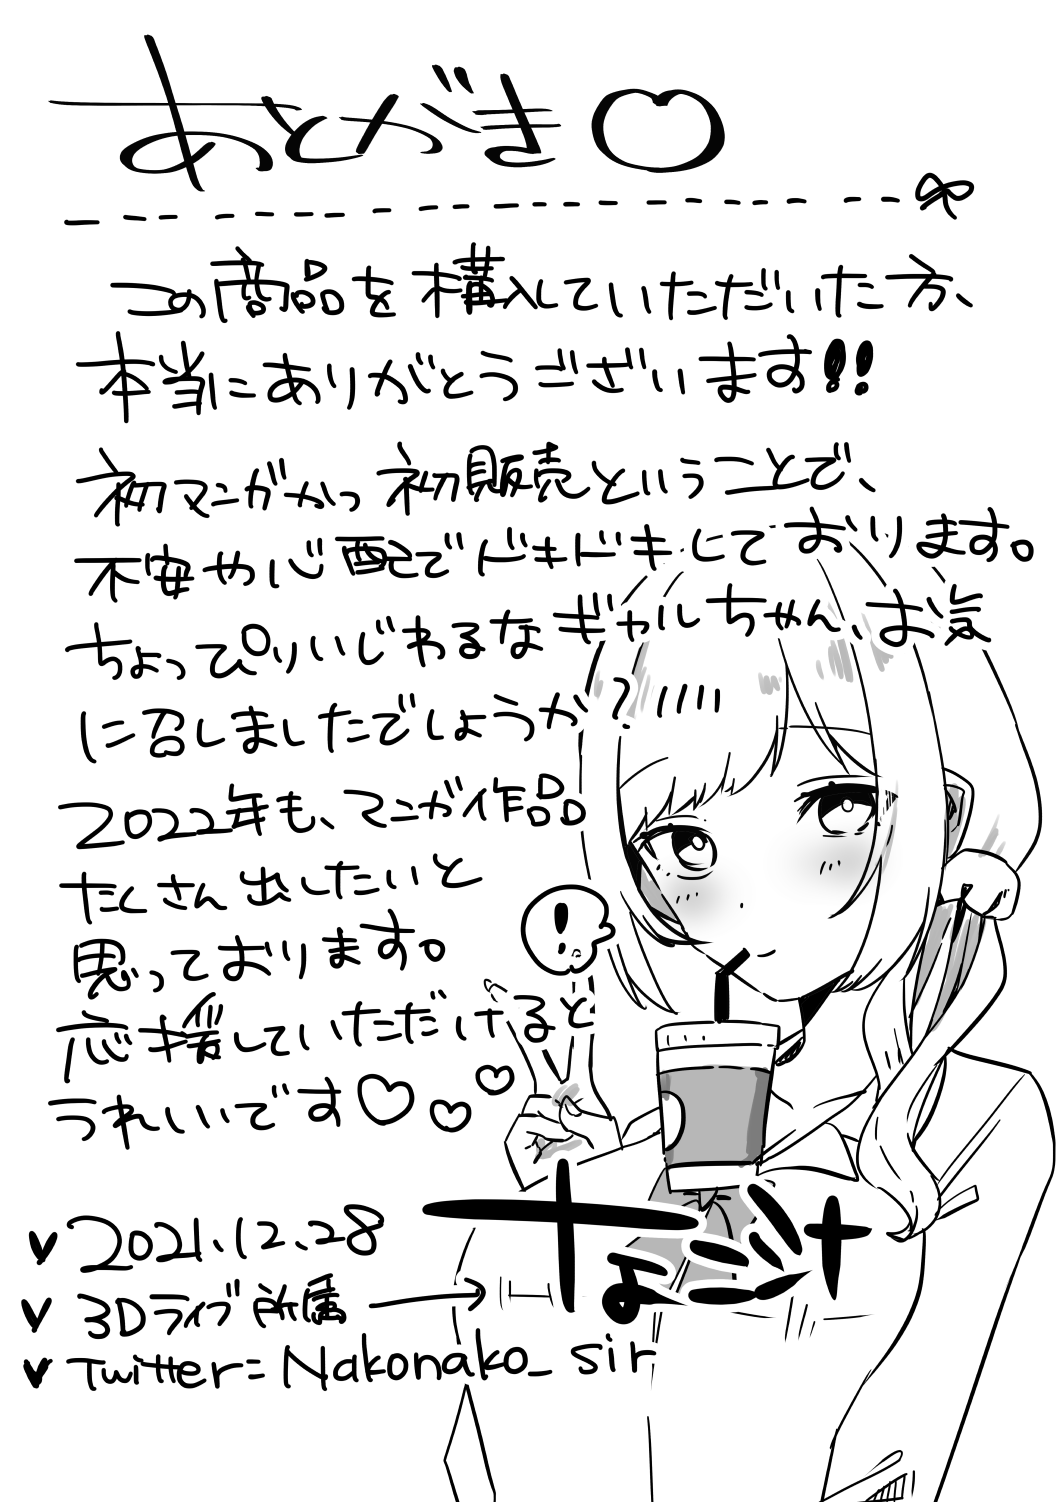 あとがき
この商品を購入していただいた方、
本当にありがとうございます!!
初マンガかつ初販売ということで、
不安や心配でドキドキしております。
ちょっぴりいじわるなギャルちゃん、お気
に召しましたでしょうか?
2022年も、マンガ作品
たくさん出したいと
思っております。
応援していただけると
うれしいです♡♡♡
♥2021.12.28
♥3Dライブ所属→
♥Twitter=Nakonako_sir